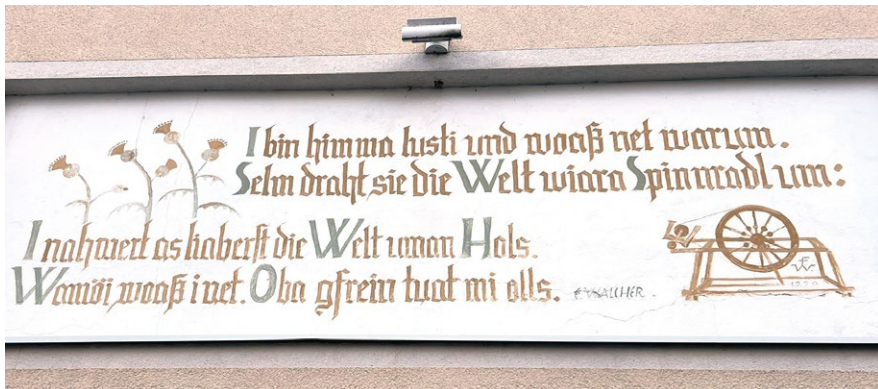 I bin himma lusti und woaß net warum.
draht sie die Welt wiara Spinnradl um:
I nahmert as liaberst die Welt uman Hols.
woaß i net. Oba gfrein tuat mi olls.